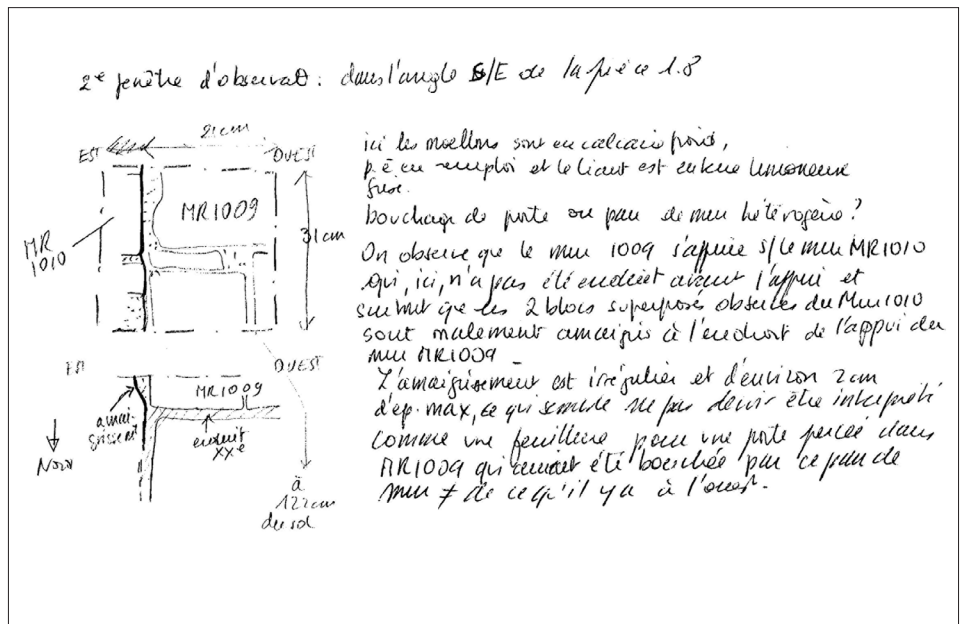 2e fenêtre d'observat° : dans l'angle S/E de la pièce 1.8
21cm
EST
OUEST
MR1009
MR
1010
31cm
EST
OUEST
MR1009
amai-
grissement
enduit
XXe
Nord
à
122cm
du sol
ici les moellons sont en calcaire froid,
p.ê en remploi et le liant est en terre limoneuse
bouchage de porte ou pan de mur hétérogène?
On observe que le mur 1009 s'appuie s/le mur MR1010
qui, ici, n'a pas été enduit avant l'appui et
surtout que les 2 blocs superposés observés du Mur 1010
sont amaigris à l'endroit de l'appui du
mur MR1009.
L'amaigrissement est irrégulier et d'environ 2cm
d'ép. max, ce qui semble ne pas devoir être interprété
comme une feuillure pour une porte percée dans
MR1009 qui aurait été bouchée par ce pan de
mur ≠ de ce qu'il y a à l'ouest.